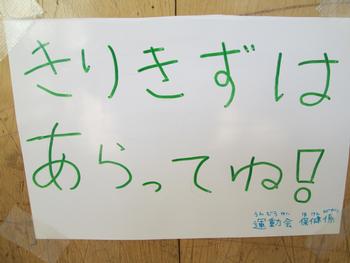 きりきずは
あらってね!
うんどうかい ほけんがかり
運動会 保健係